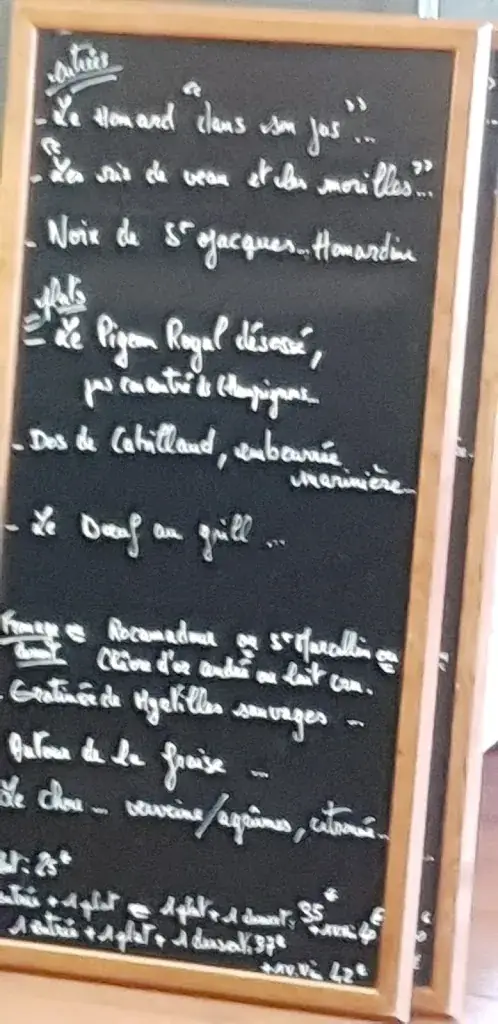 entrées
- Le Homard "dans son jus"...
- "Les ris de veau et les morilles"...
- Noix de St Jacques... Homardine
plats
- Le Pigeon Royal désossé,
jus concentré de Champignons...
- Dos de Cabillaud, embeurrée
marinière...
- Le Bœuf au grill...
Fromage = Rocamadour ou St Marcellin ou
dessert Chèvre d'or au lait cru.
- Gratinée de Myrtilles sauvages...
Autour de la fraise...
Le chou... verveine/agrumes, citronné...
25€
entrée + 1 plat = 1 plat + 1 dessert, 35€
1 entrée + 1 plat + 1 dessert, 37€
42€